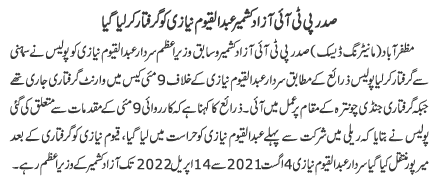 صدر پی ٹی آئی آزاد کشمیر عبدالقیوم نیازی کو گرفتار کر لیا گیا
مظفر آباد (مانیٹرنگ ڈیسک) صدر پی ٹی آئی آزاد کشمیر و سابق وزیراعظم سردار عبدالقیوم نیازی کو پولیس نے سماہنی
سے گرفتار کر لیا پولیس ذرائع کے مطابق سردار عبدالقیوم نیازی کے خلاف 9 مئی کیس میں وارنٹ گرفتاری جاری تھے
جبکہ گرفتاری جنڈی چونترہ کے مقام پر عمل میں آئی۔ ذرائع کا کہنا ہے کہ کارروائی 9 مئی کے مقدمات سے متعلق کی گئی
پولیس نے بتایا کہ ریلی میں شرکت سے پہلے عبدالقیوم نیازی کو حراست میں لیا گیا، قیوم نیازی کو گرفتاری کے بعد
میرپور منتقل کیا گیا سردار عبدالقیوم نیازی 4 اگست 2021 سے 14 اپریل 2022 تک آزاد کشمیر کے وزیراعظم رہے۔